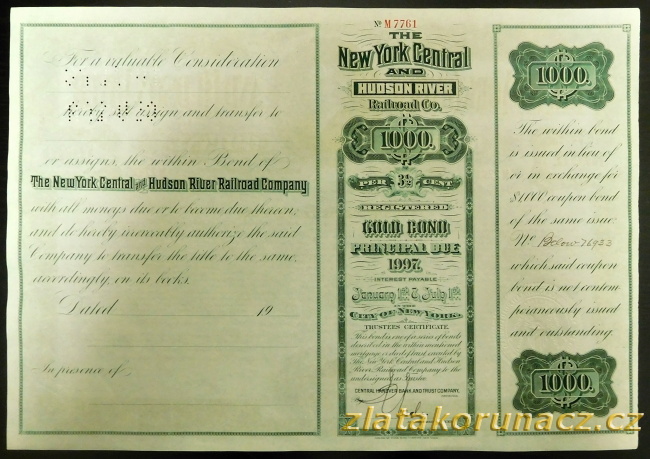 For a valuable Consideration
hereby sell assign and transfer to
or assigns, the within Bond of
The New York Central and Hudson River Railroad Company
with all moneys due or to become due thereon,
and do hereby irrevocably authorize the said
Company to transfer the title to the same,
accordingly, on its books.
Dated 19
In presence of
No M7761
THE
New York Central
AND
HUDSON RIVER
Railroad Co.
1000.
PER 3½ CENT.
REGISTERED
GOLD BOND
PRINCIPAL DUE
1997.
INTEREST PAYABLE
January 1st & July 1st
IN THE
CITY OF NEW YORK.
TRUSTEES CERTIFICATE.
This bond is one of a series of bonds
described in the within mentioned
mortgage or deed of trust executed by
The New York Central and Hudson
River Railroad Company to the
undersigned as Trustee
CENTRAL HANOVER BANK AND TRUST COMPANY,
1000.
The within bond
is issued in lieu of
or in exchange for
$1,000 coupon bond
of the same issue
No. 76933
which said coupon
bond is not contem-
poraneously issued
and outstanding.
1000.
zlatakorunacz.cz